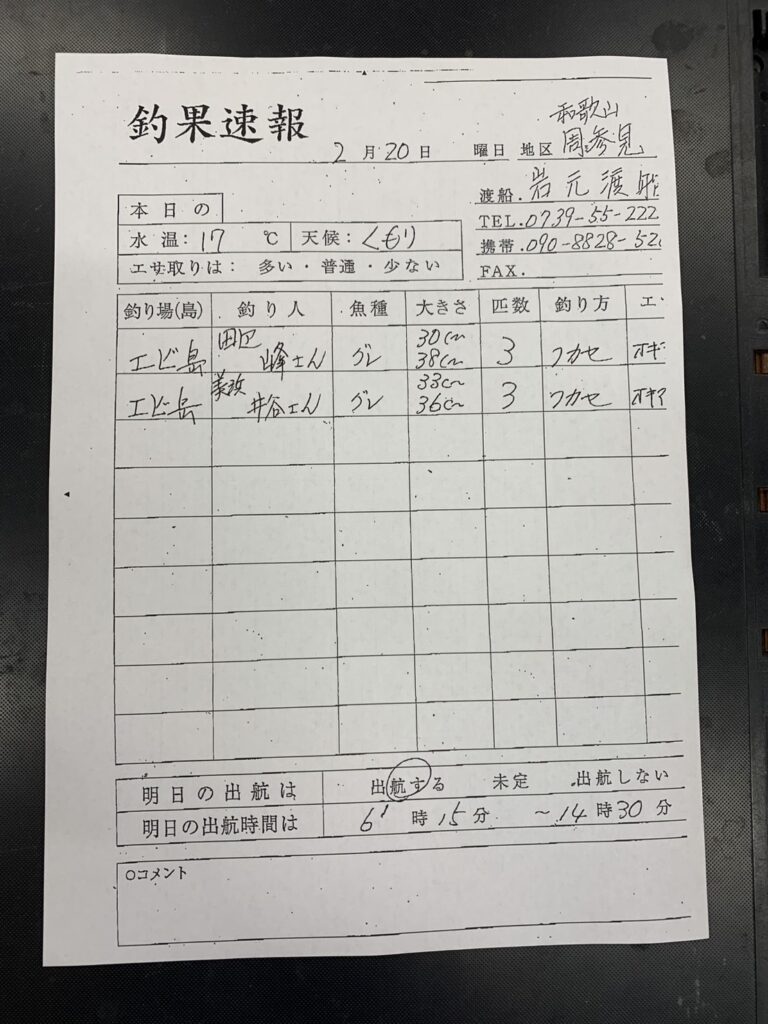 釣果速報
2月20日 曜日 地区 和歌山 周参見
渡船.岩元渡船
TEL.0739-55-222
携帯.090-8828-52
FAX.
本日の
水温:17℃ 天候:くもり
エサ取りは: 多い・普通・少ない
釣り場(島) 釣り人 魚種 大きさ 匹数 釣り方 エ
エビ島 田辺 峰さん グレ 30cm 38cm 3 フカセ オキ
エビ島 美浜 井谷さん グレ 33cm 36cm 3 フカセ オキア
明日の出航は 出航する 未定 出航しない
明日の出航時間は 6時15分 ～14時30分
○コメント